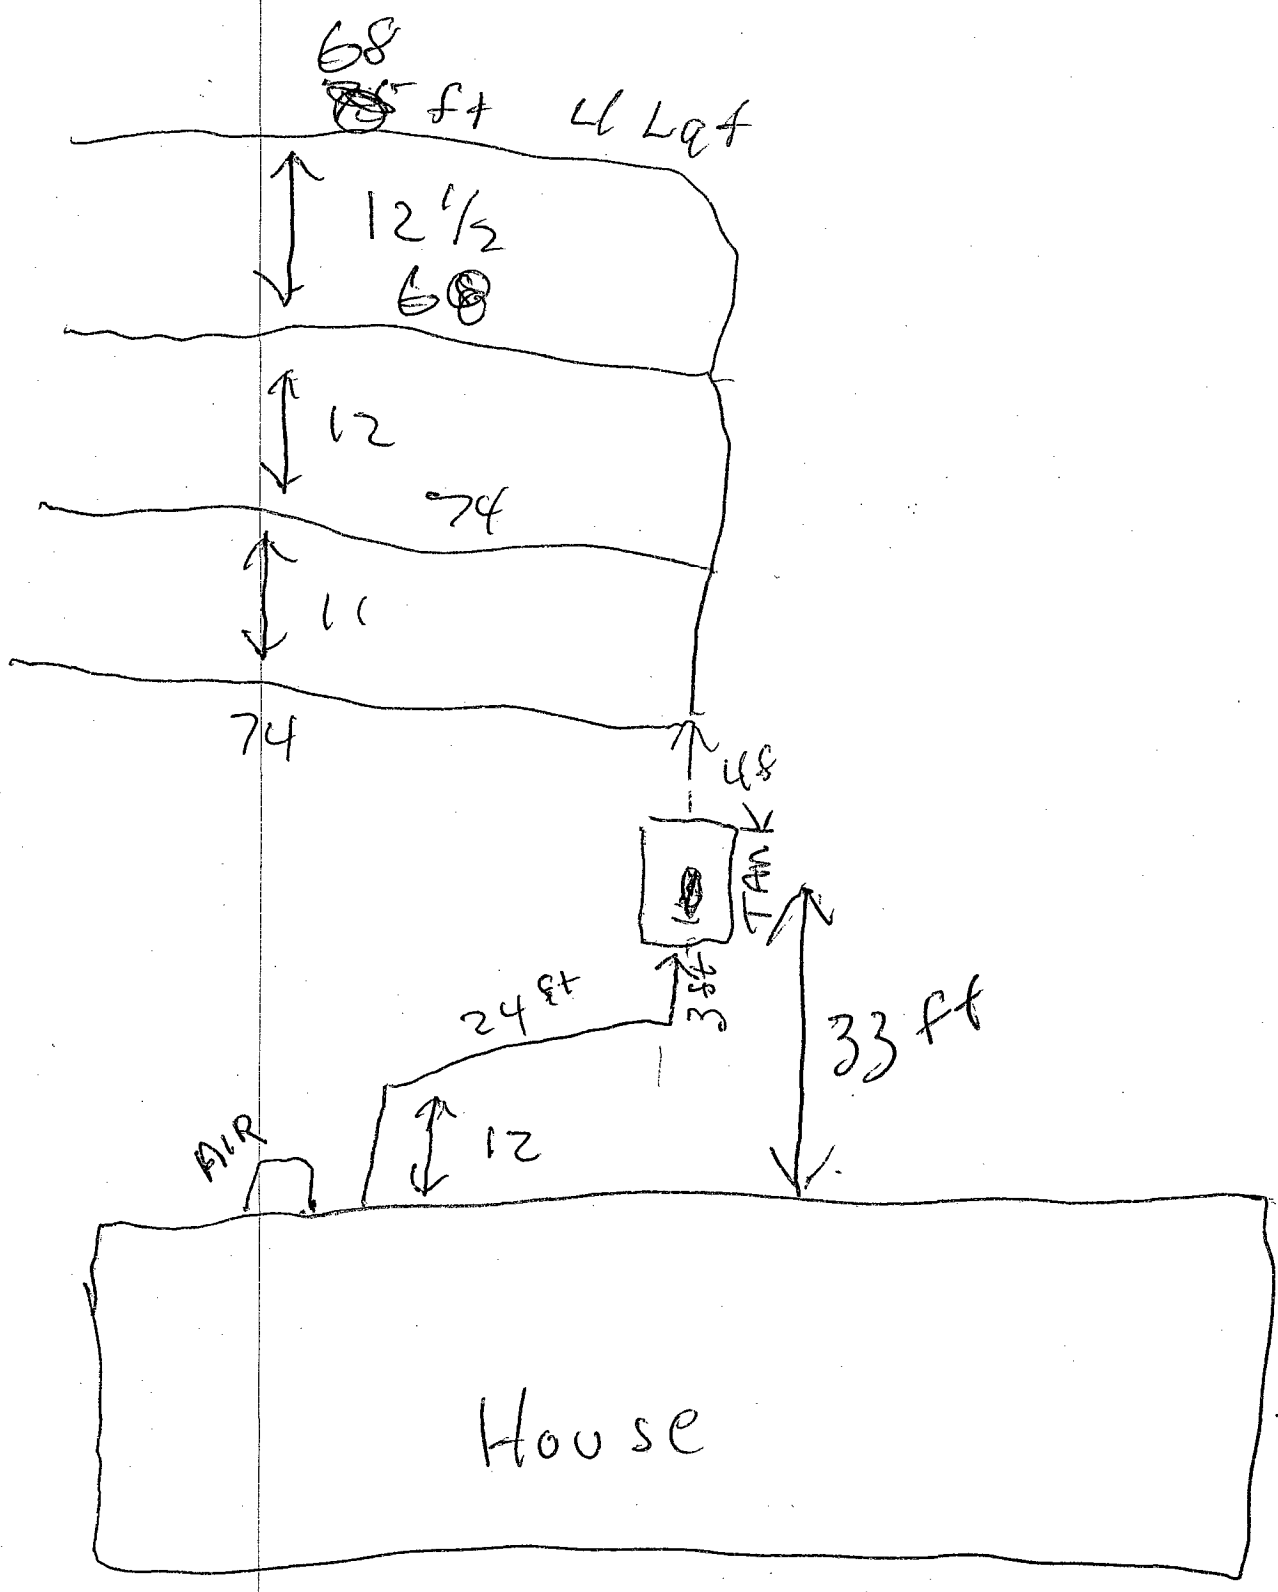 68
ft 4 Lat
12 1/2
68
12
74
11
74
48
TANK
24 ft
3 ft
33 ft
AIR
12
House